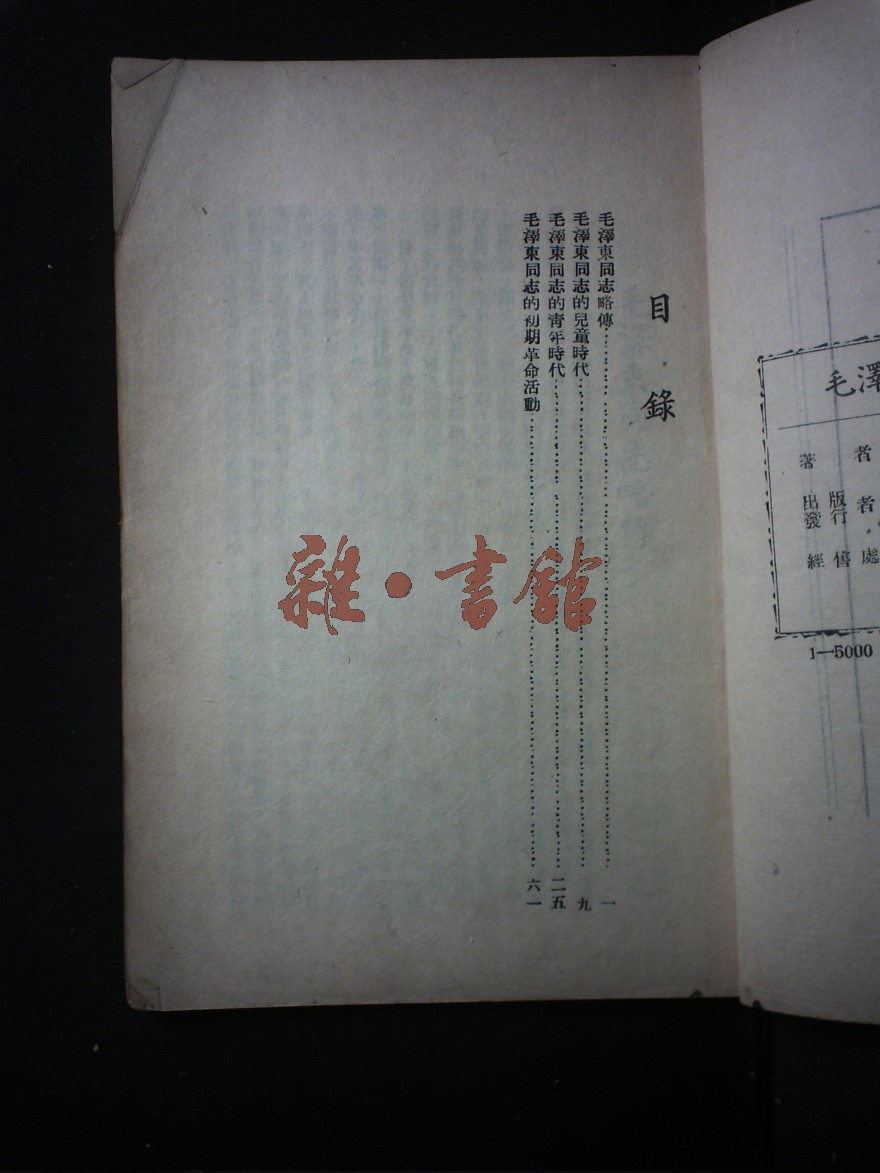 毛澤
著者
出版者
發行
經售處
1—5000
目錄
毛澤東同志略傳……一
毛澤東同志的兒童時代……九
毛澤東同志的青年時代……二五
毛澤東同志的初期革命活動……六一
雜·書館